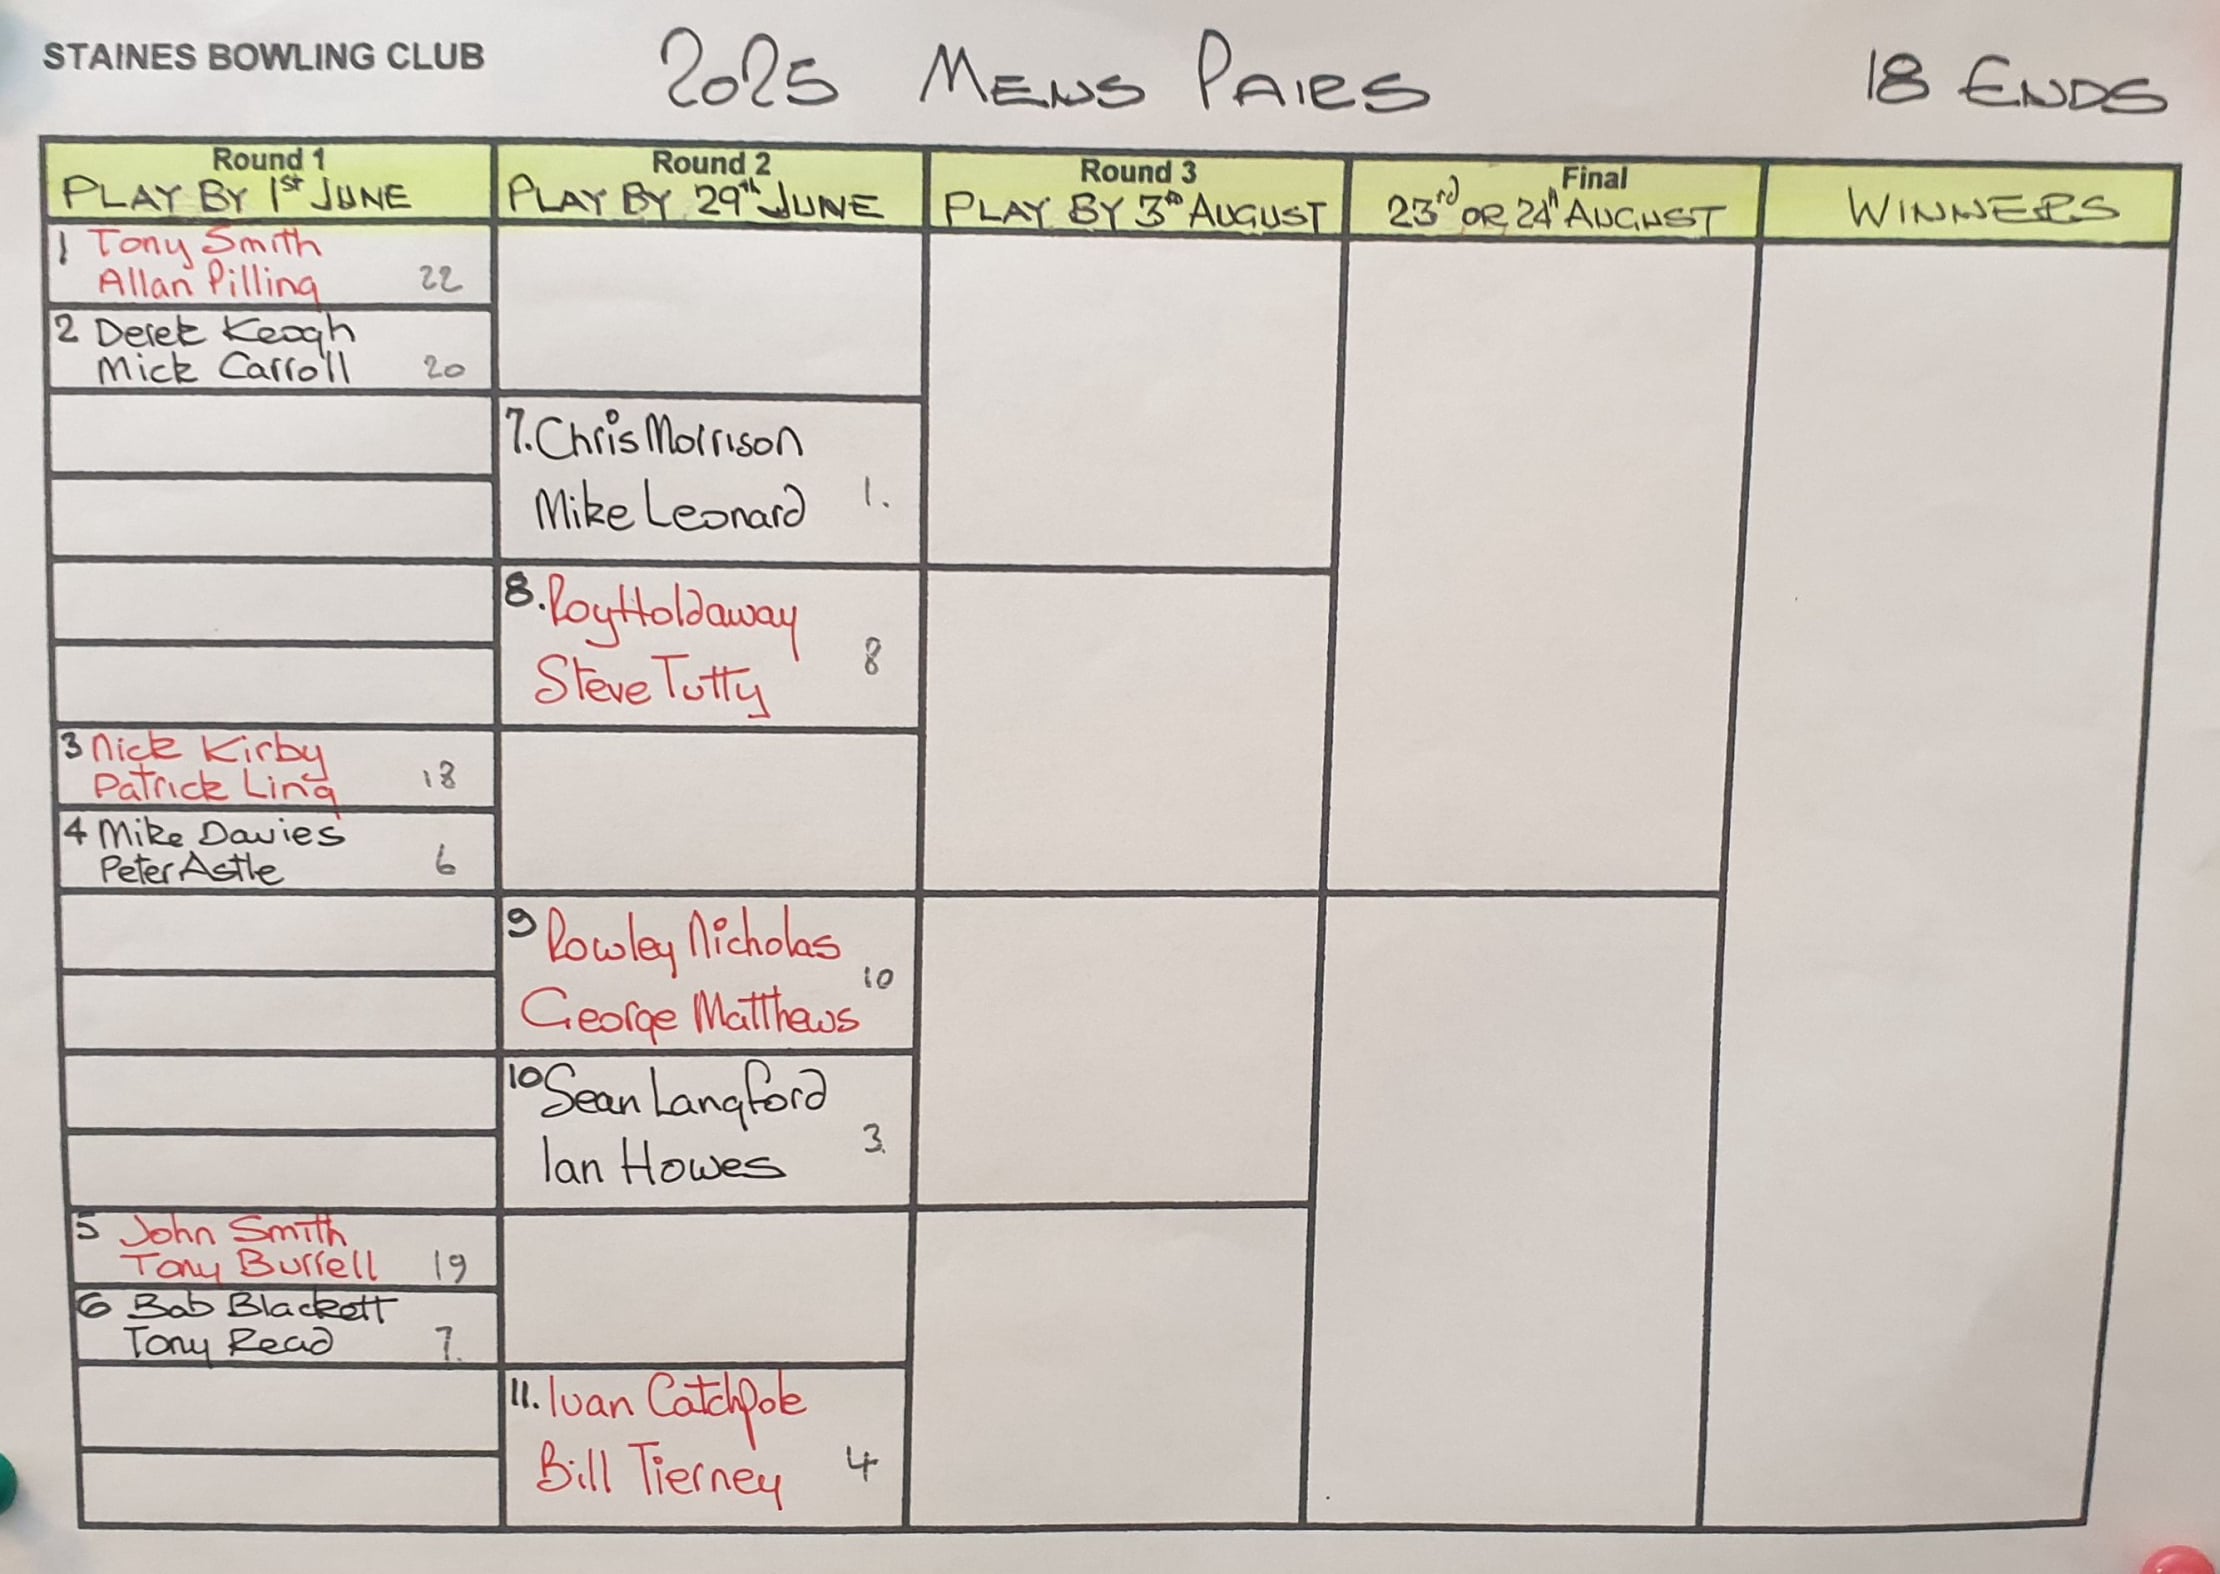 STAINES BOWLING CLUB
2025 MENS PAIRS
18 ENDS
Round 1
PLAY BY 1ST JUNE
Round 2
PLAY BY 29th JUNE
Round 3
PLAY BY 3rd AUGUST
Final
23rd OR 24th AUGUST
WINNERS
1 Tony Smith
Allan Pilling 22
2 Derek Keogh
Mick Carroll 20
7. Chris Morrison
Mike Leonard 1.
8. Roy Holdaway
Steve Tutty 8
3 Nick Kirby
Patrick Ling 18
4 Mike Davies
Peter Astle 6
9 Rowley Nicholas
George Matthews 10
10 Sean Langford
Ian Howes 3.
5 John Smith
Tony Burrell 19
6 Bob Blackett
Tony Read 7.
11. Ivan Catchpole
Bill Tierney 4